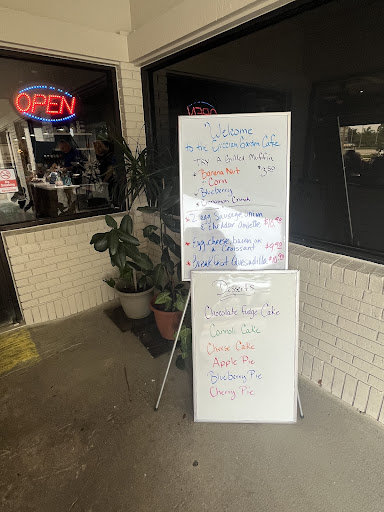 OPEN
OPEN
Welcome
to the Garden Cafe
Try A Grilled Muffin
Banana Nut
$3.50
Corn
Blueberry
Cinnamon Crunch
2 egg Sausage, onion
& cheddar omlette
Egg, cheese, bacon on
a Croissant
Breakfast Quesadilla
Desserts
Chocolate Fudge Cake
Cannoli Cake
Cheese Cake
Apple Pie
Blueberry Pie
Cherry Pie